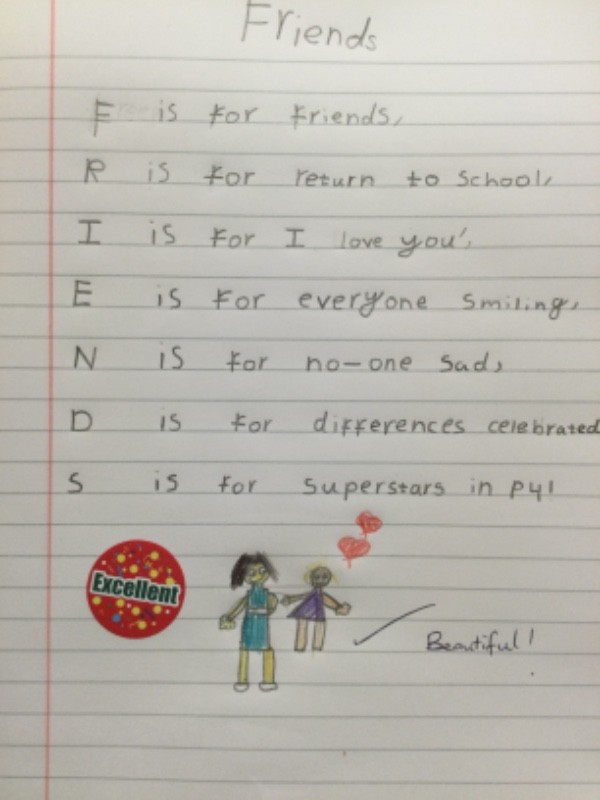 Friends
F is for friends,
R is for return to school,
I is for I love you',
E is for everyone smiling,
N is for no-one sad,
D is for differences celebrated
S is for superstars in P4!
Excellent
Beautiful!